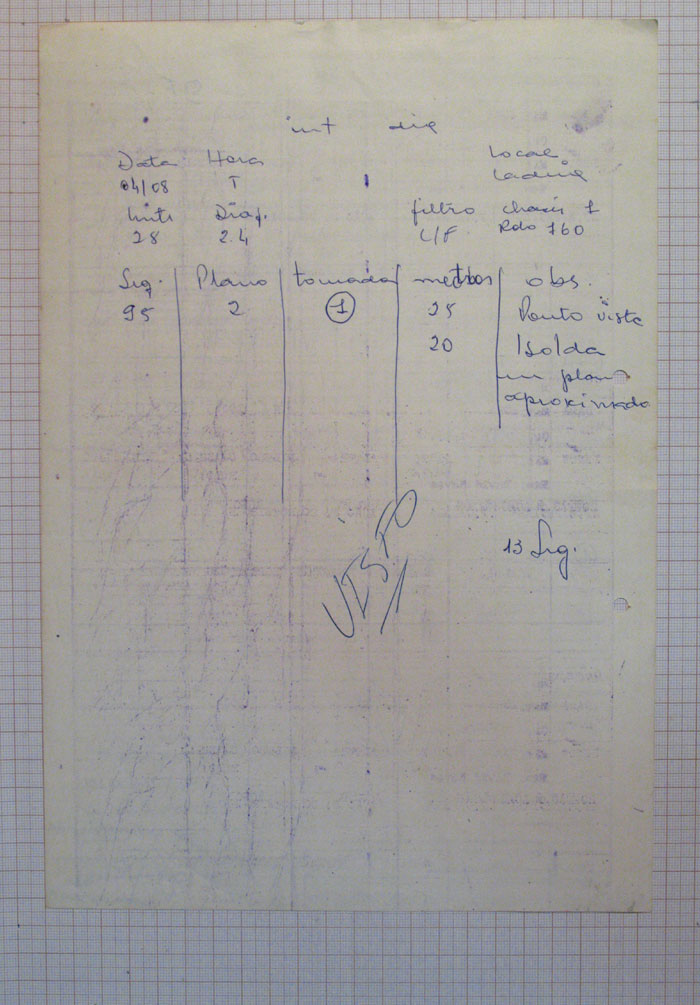 int dia
Data Hora Local
04/08 T
lente Diaf. filtro chassi 1
28 2.4 L/F Rdo 160
Seq. Plano tomada metros obs.
95 2 1 25 Ponto vista
20 Isolda
um plano
aproximado
VISTO
13 Seg.